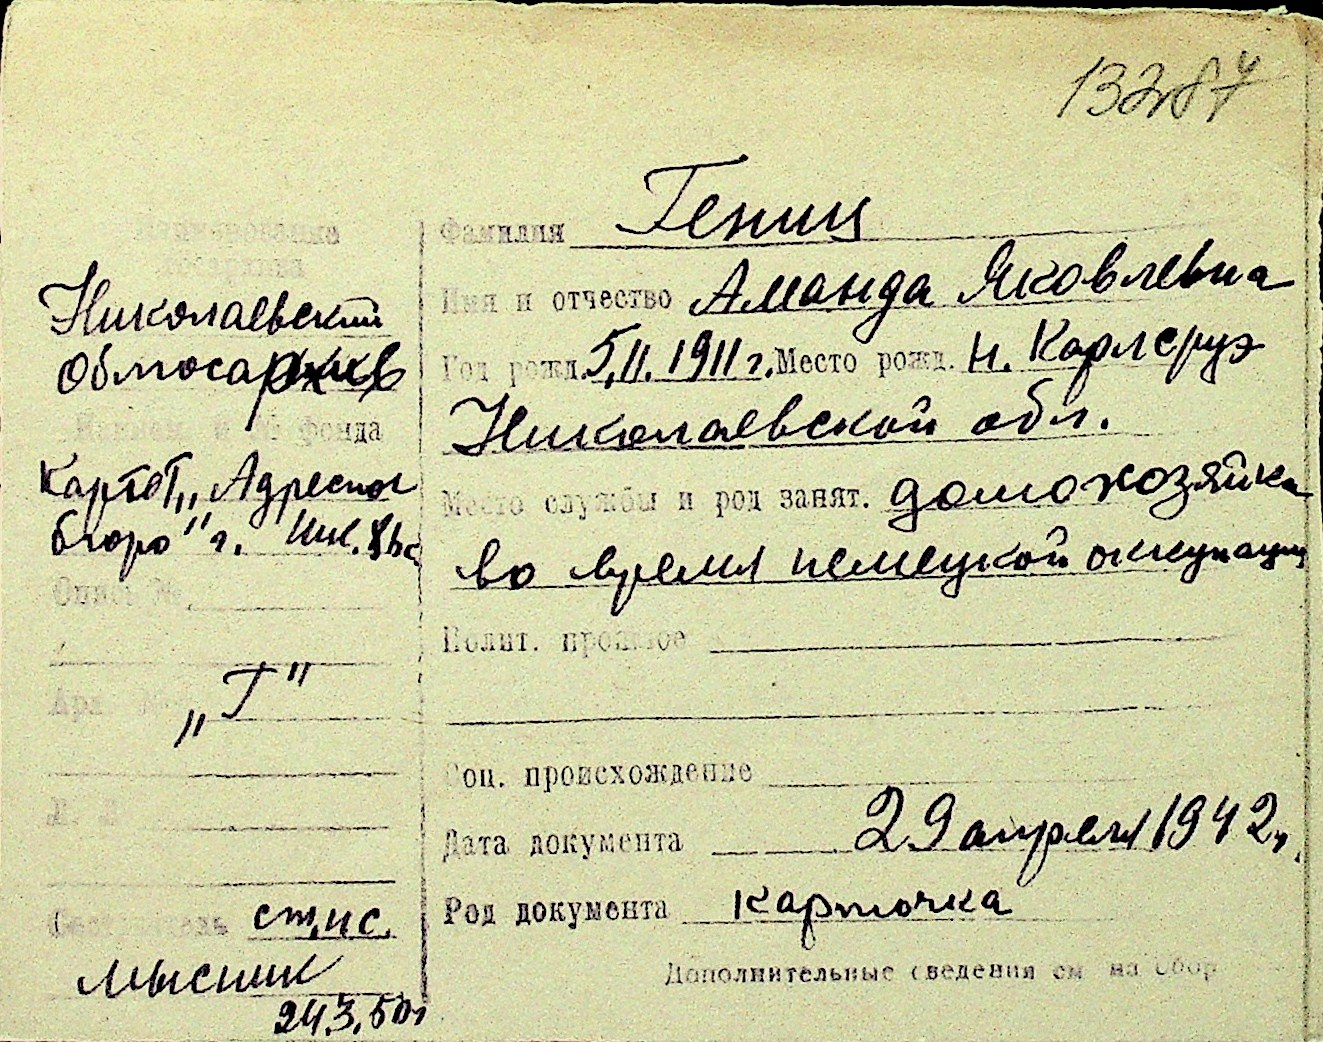 13287
Наименование
госархива
Николаевский
Облгосархив
Наимен. и № фонда
Картот „Адресног
бюро" г.
Опись №
Арх. №
„Г"
Л. Л.
Составитель ст.н.с.
Мысник
24.3.50г
Фамилия Гениц
Имя и отчество Аманда Яковлевна
Год рожд. 5.II.1911г. Место рожд. н. Карлсруэ
Николаевской обл.
Место службы и род занят. домохозяйка
во время немецкой оккупации
Полит. прошлое
Соц. происхождение
Дата документа 29 апреля 1942г.
Род документа карточка
Дополнительные сведения см на обор